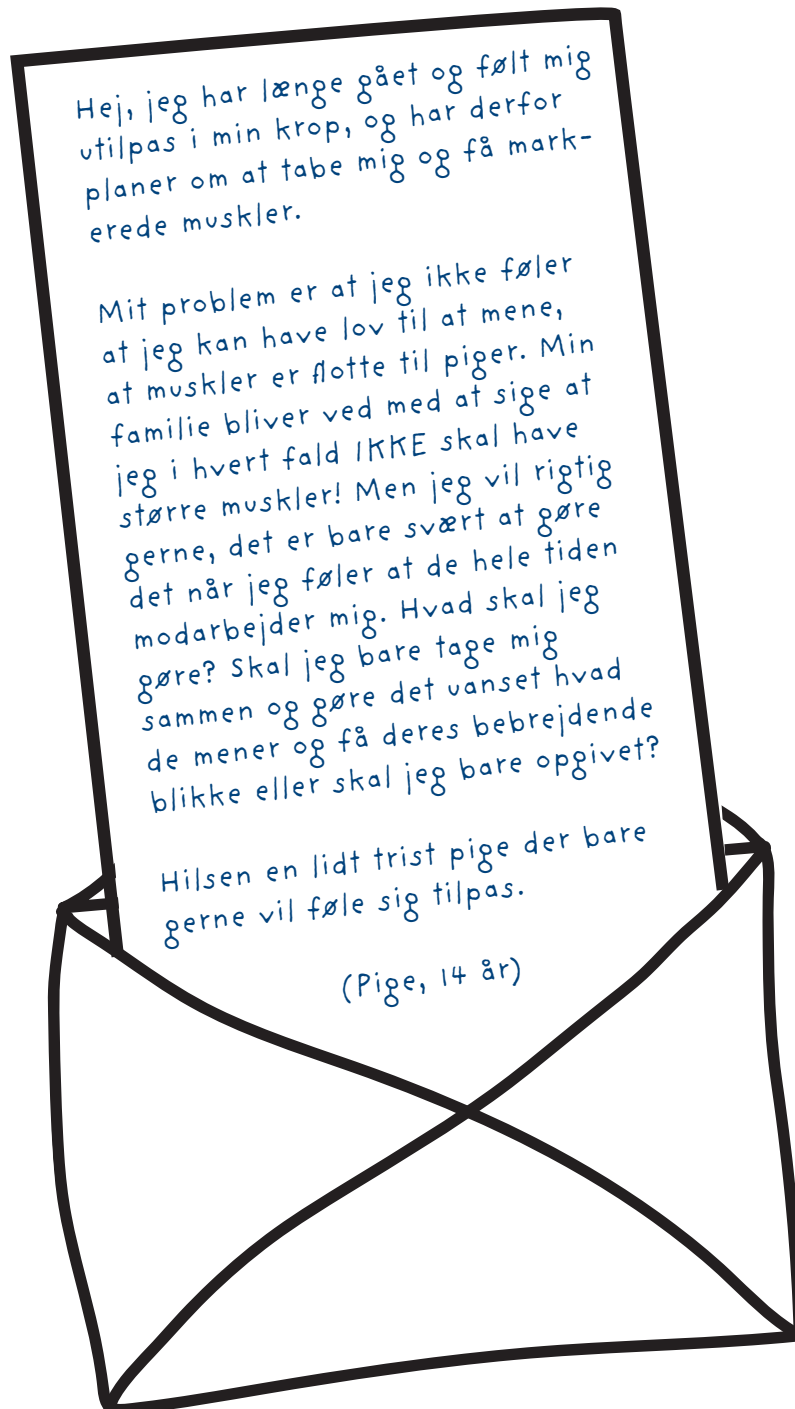 Hej, jeg har længe gået og følt mig
utilpas i min krop, og har derfor
planer om at tabe mig og få mark-
erede muskler.
Mit problem er at jeg ikke føler
at jeg kan have lov til at mene,
at muskler er flotte til piger. Min
familie bliver ved med at sige at
jeg i hvert fald IKKE skal have
større muskler! Men jeg vil rigtig
gerne, det er bare svært at gøre
det når jeg føler at de hele tiden
modarbejder mig. Hvad skal jeg
gøre? Skal jeg bare tage mig
sammen og gøre det uanset hvad
de mener og få deres bebrejdende
blikke eller skal jeg bare opgivet?
Hilsen en lidt trist pige der bare
gerne vil føle sig tilpas.
(Pige, 14 år)